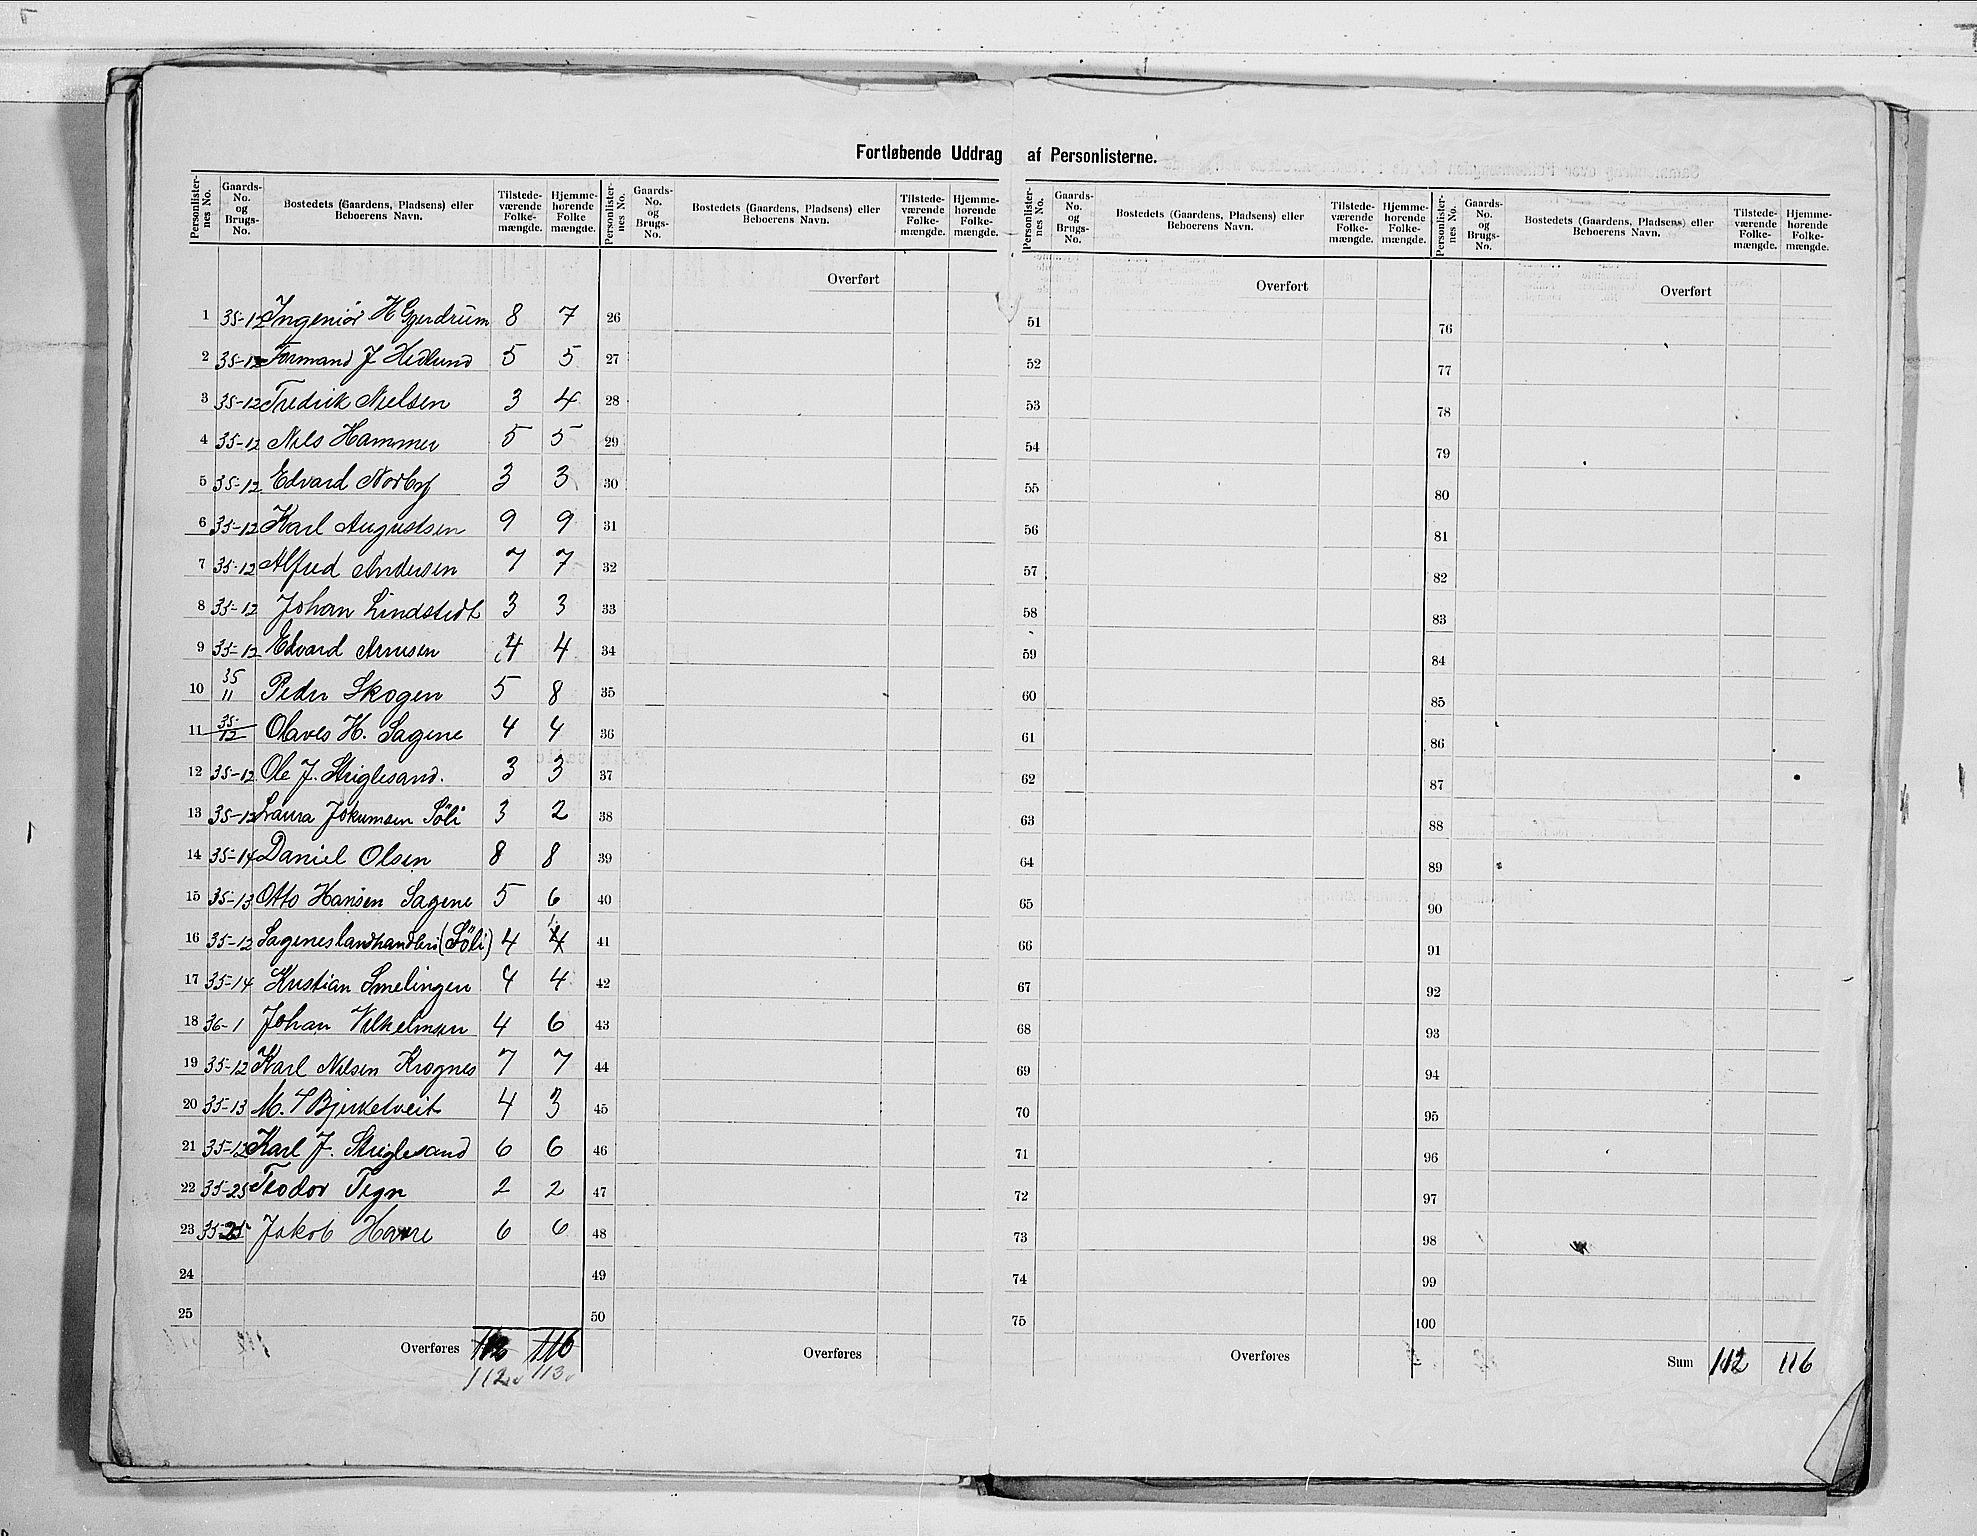 Fortløbende Uddrag af Personlisterne.
Personlisternes No. Gaards-No. og Brugs-No. Bostedets (Gaardens, Pladsens) eller Beboerens Navn. Tilstedeværende Folkemængde. Hjemmehørende Folke mængde.
Personlisternes No. Gaards-No. og Brugs-No. Bostedets (Gaardens, Pladsens) eller Beboerens Navn. Tilstedeværende Folkemængde. Hjemmehørende Folkemængde.
Personlisternes No. Gaards-No. og Brugs-No. Bostedets (Gaardens, Pladsens) eller Beboerens Navn. Tilstedeværende Folkemængde. Hjemmehørende Folkemængde.
Personlisternes No. Gaards-No. og Brugs-No. Bostedets (Gaardens, Pladsens) eller Beboerens Navn. Tilstedeværende Folkemængde. Hjemmehørende Folkemængde.
Overført Overført Overført
1 35-12 Ingeniør H Gjerdrum 8 7 26 51 76
2 35-12 Formand J Hedlund 5 5 27 52 77
3 35-12 Fredrik Nielsen 3 4 28 53 78
4 35-12 Nils Hammer 5 5 29 54 79
5 35-12 Edvard Norby 3 3 30 55 80
6 35-12 Karl Augustsen 9 9 31 56 81
7 35-12 Alfred Andersen 7 7 32 57 82
8 35-12 Johan Lindstedt 3 3 33 58 83
9 35-12 Edvard Arnesen 4 4 34 59 84
10 35 11 Peder Skogen 5 8 35 60 85
11 35/12 Olaves H. Sagene 4 4 36 61 86
12 35-12 Ole J. Striglesand. 3 3 37 62 87
13 35-12 Laura Jokumsen Söli 3 2 38 63 88
14 35-14 Daniel Olsen 8 8 39 64 89
15 35-13 Otto Hansen Sagene 5 6 40 65 90
16 35-12 Sageneslandhandleri (Söli) 4 4 41 66 91
17 35-14 Kristian Smelingen 4 4 42 67 92
18 36-1 Johan Vilhelmsen 4 6 43 68 93
19 35-12 Karl Nilsen Krognes 7 7 44 69 94
20 35-13 M. T Bjerketveit 4 3 45 70 95
21 35-12 Karl J. Striglesand 6 6 46 71 96
22 35-25 Teodor Tegn 2 2 47 72 97
23 35-25 Jakob Havre 6 6 48 73 98
24 49 74 99
25 50 75 100
Overføres 112 116 Overføres Overføres Sum 112 116
112 113